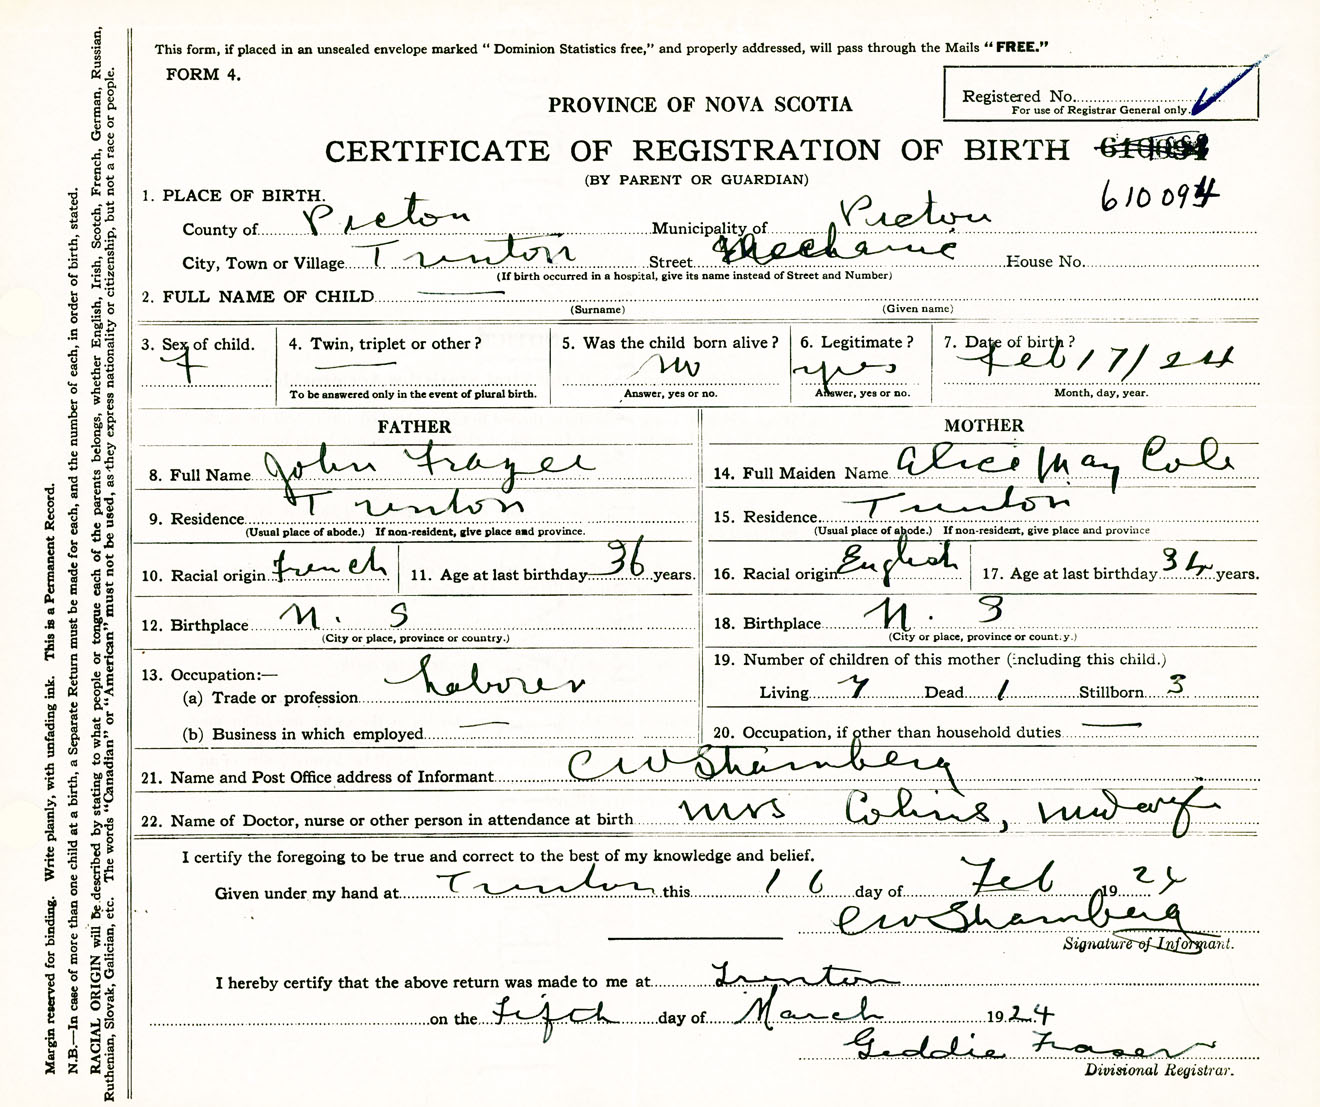 This form, if placed in an unsealed envelope marked “ Dominion Statistics free,” and properly addressed, will pass through the Mails “FREE.”
FORM 4.
Registered No.
For use of Registrar General only.
PROVINCE OF NOVA SCOTIA
CERTIFICATE OF REGISTRATION OF BIRTH
(BY PARENT OR GUARDIAN)
610094
1. PLACE OF BIRTH.
County of Pictou Municipality of Pictou
City, Town or Village Trenton Street Mechanic House No.
(If birth occurred in a hospital, give its name instead of Street and Number)
2. FULL NAME OF CHILD —
(Surname) (Given name)
3. Sex of child. 4. Twin, triplet or other? 5. Was the child born alive? 6. Legitimate? 7. Date of birth?
f — no yes Feb 17/24
To be answered only in the event of plural birth. Answer, yes or no. Answer, yes or no. Month, day, year.
FATHER MOTHER
8. Full Name John Frazee 14. Full Maiden Name Alice May Cole
9. Residence Trenton 15. Residence Trenton
(Usual place of abode.) If non-resident, give place and province. (Usual place of abode.) If non-resident, give place and province
10. Racial origin French 11. Age at last birthday 36 years. 16. Racial origin English 17. Age at last birthday 34 years.
12. Birthplace N. S 18. Birthplace N. S
(City or place, province or country.) (City or place, province or country.)
13. Occupation:— 19. Number of children of this mother (including this child.)
(a) Trade or profession Laborer Living 7 Dead 1 Stillborn 3
(b) Business in which employed — 20. Occupation, if other than household duties —
21. Name and Post Office address of Informant CW Stramberg
22. Name of Doctor, nurse or other person in attendance at birth Mrs Colins, Midwif
I certify the foregoing to be true and correct to the best of my knowledge and belief.
Given under my hand at Trenton this 16 day of Feb 1924
CW Stramberg
Signature of Informant.
I hereby certify that the above return was made to me at Trenton
on the Fifth day of March 1924
Geddie Fraser
Divisional Registrar.
Margin reserved for binding. Write plainly, with unfading ink. This is a Permanent Record.
N.B.—In case of more than one child at a birth, a Separate Return must be made for each, and the number of each, in order of birth, stated.
RACIAL ORIGIN will be described by stating to what people or tongue each of the parents belongs, whether English, Irish, Scotch, French, German, Russian,
Ruthenian, Slovak, Galician, etc. The words “Canadian” or “American” must not be used, as they express nationality or citizenship, but not a race or people.